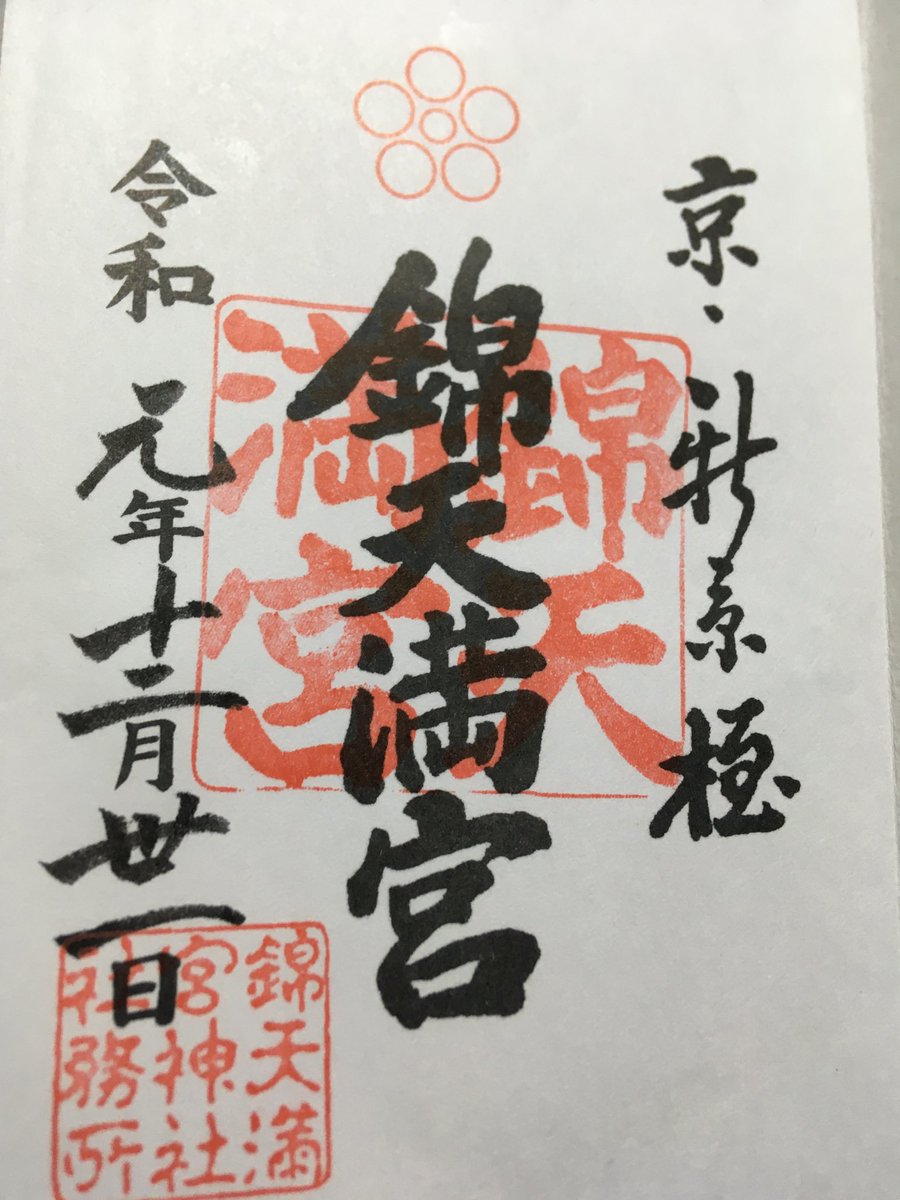 京・新京極
錦天満宮
錦天
満宮
令和元年十二月丗一日
錦天満
宮神社
社務所